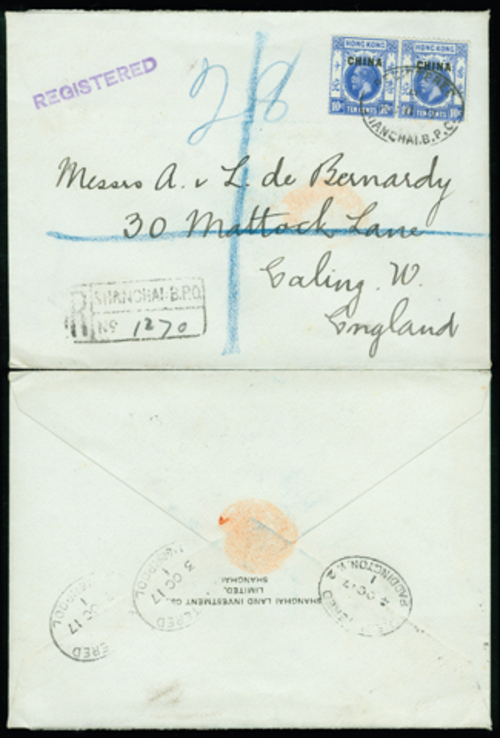 REGISTERED
28
HONG KONG HONG KONG
CHINA CHINA
10c 10c 10c
TEN CENTS TEN CENTS
SHANGHAI.B.P.O.
Messrs A. & L. de Bernardy
30 Mattock Lane
Ealing. W.
England
R SHANGHAI-B.P.O.
No 1270
SHANGHAI LAND INVESTMENT CO.
LIMITED.
SHANGHAI
REGISTERED
5 OC 17
LIVERPOOL
OC 17
PADDINGTON. W. 2
1
OC 17